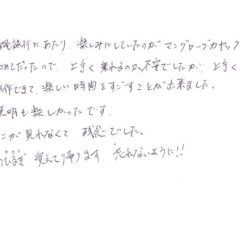 旅行にあたり、楽しみにしていたのがマングローブカヤック
めてだったので、上手く乗れるのか不安でしたが、上手く
作できて、楽しい時間をすごすことが出来ました。
説明も楽しかったです。
こが見れなくて、残念でした。
覚えて帰ります。忘れないように!!